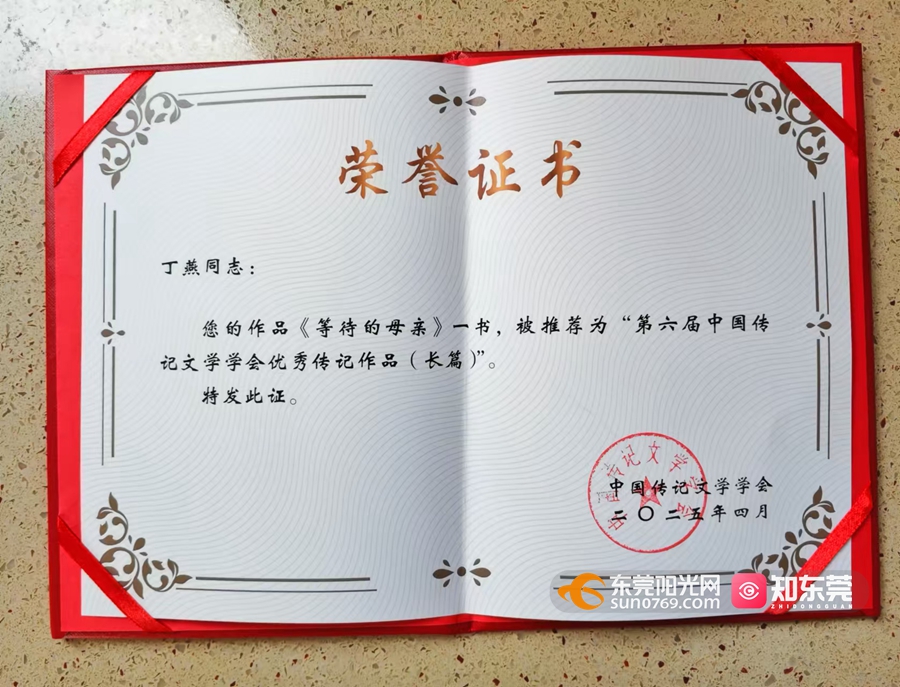 荣誉证书
丁燕同志：
您的作品《等待的母亲》一书，被推荐为“第六届中国传
记文学学会优秀传记作品（长篇）”。
特发此证。
中国传记文学学会
中国传记文学学会
二〇二五年四月
东莞阳光网
sun0769.com
知东莞
ZHIDONGGUAN